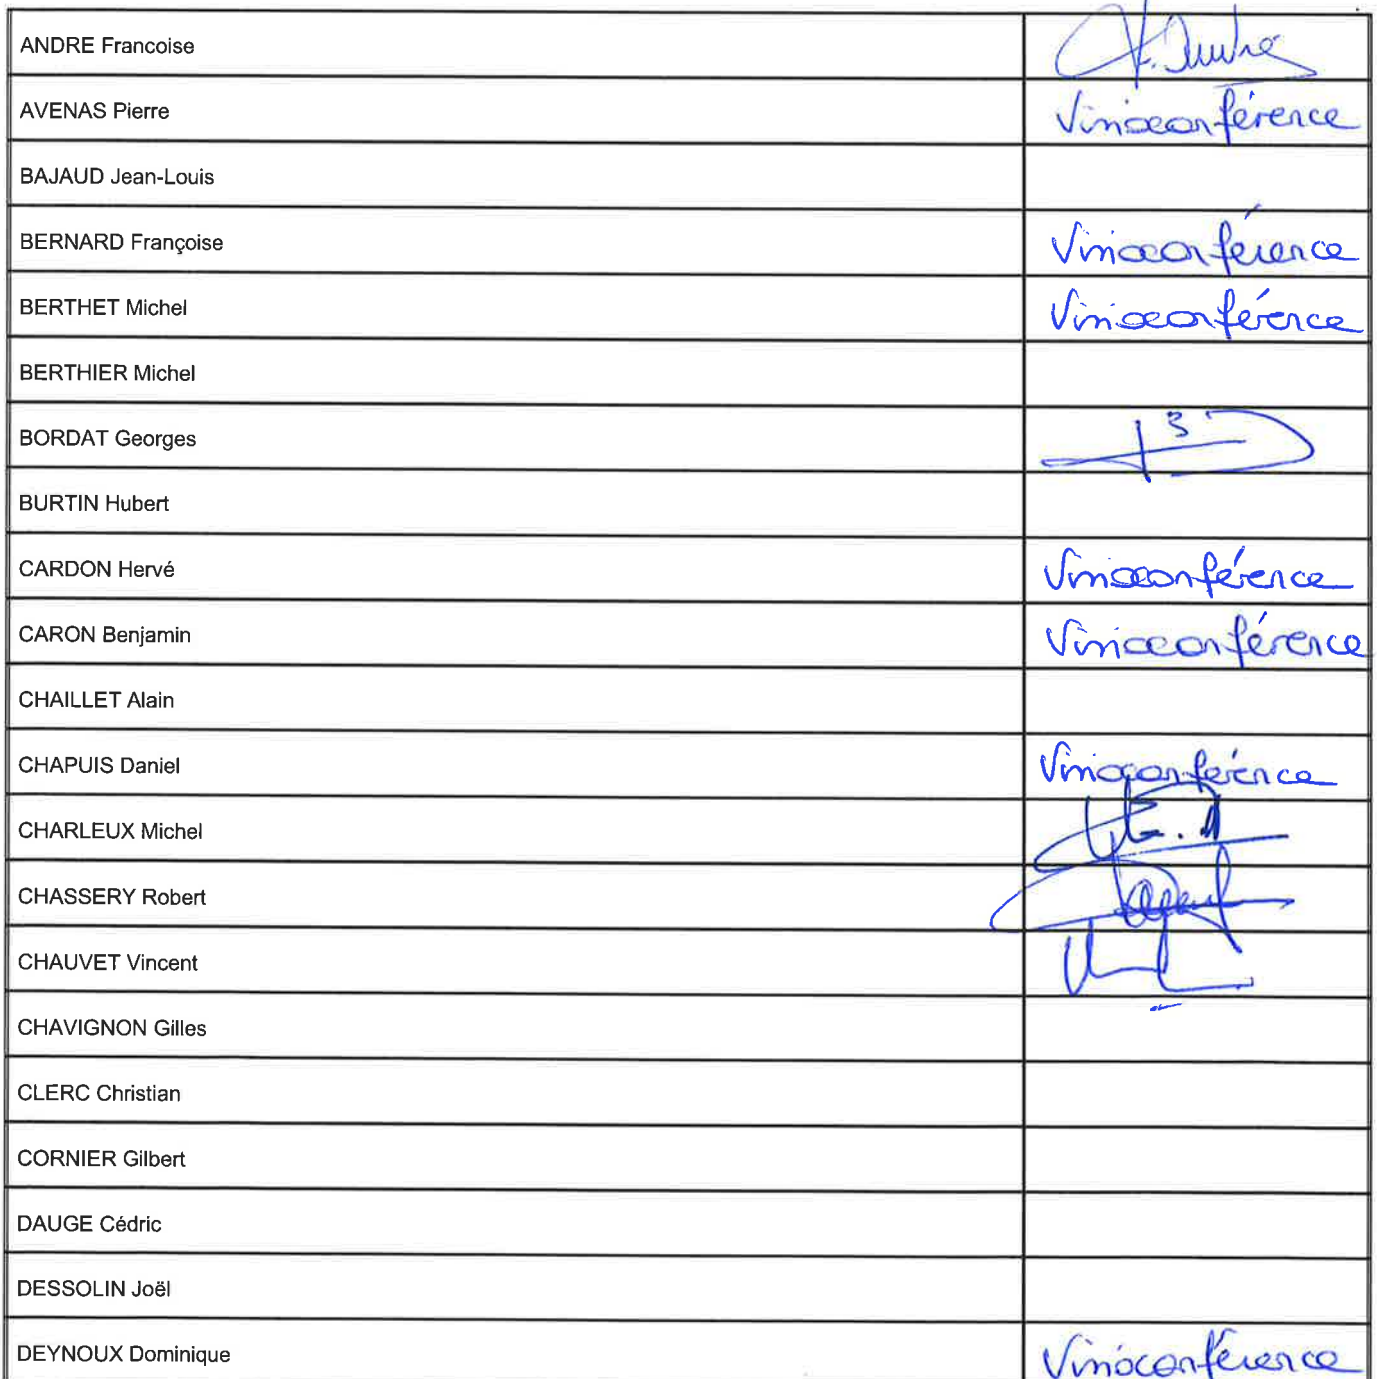 ANDRE Francoise F. André
AVENAS Pierre Visioconférence
BAJAUD Jean-Louis
BERNARD Françoise Visioconférence
BERTHET Michel Visioconférence
BERTHIER Michel
BORDAT Georges
BURTIN Hubert
CARDON Hervé Visioconférence
CARON Benjamin Visioconférence
CHAILLET Alain
CHAPUIS Daniel Visioconférence
CHARLEUX Michel
CHASSERY Robert
CHAUVET Vincent
CHAVIGNON Gilles
CLERC Christian
CORNIER Gilbert
DAUGE Cédric
DESSOLIN Joël
DEYNOUX Dominique Visioconférence